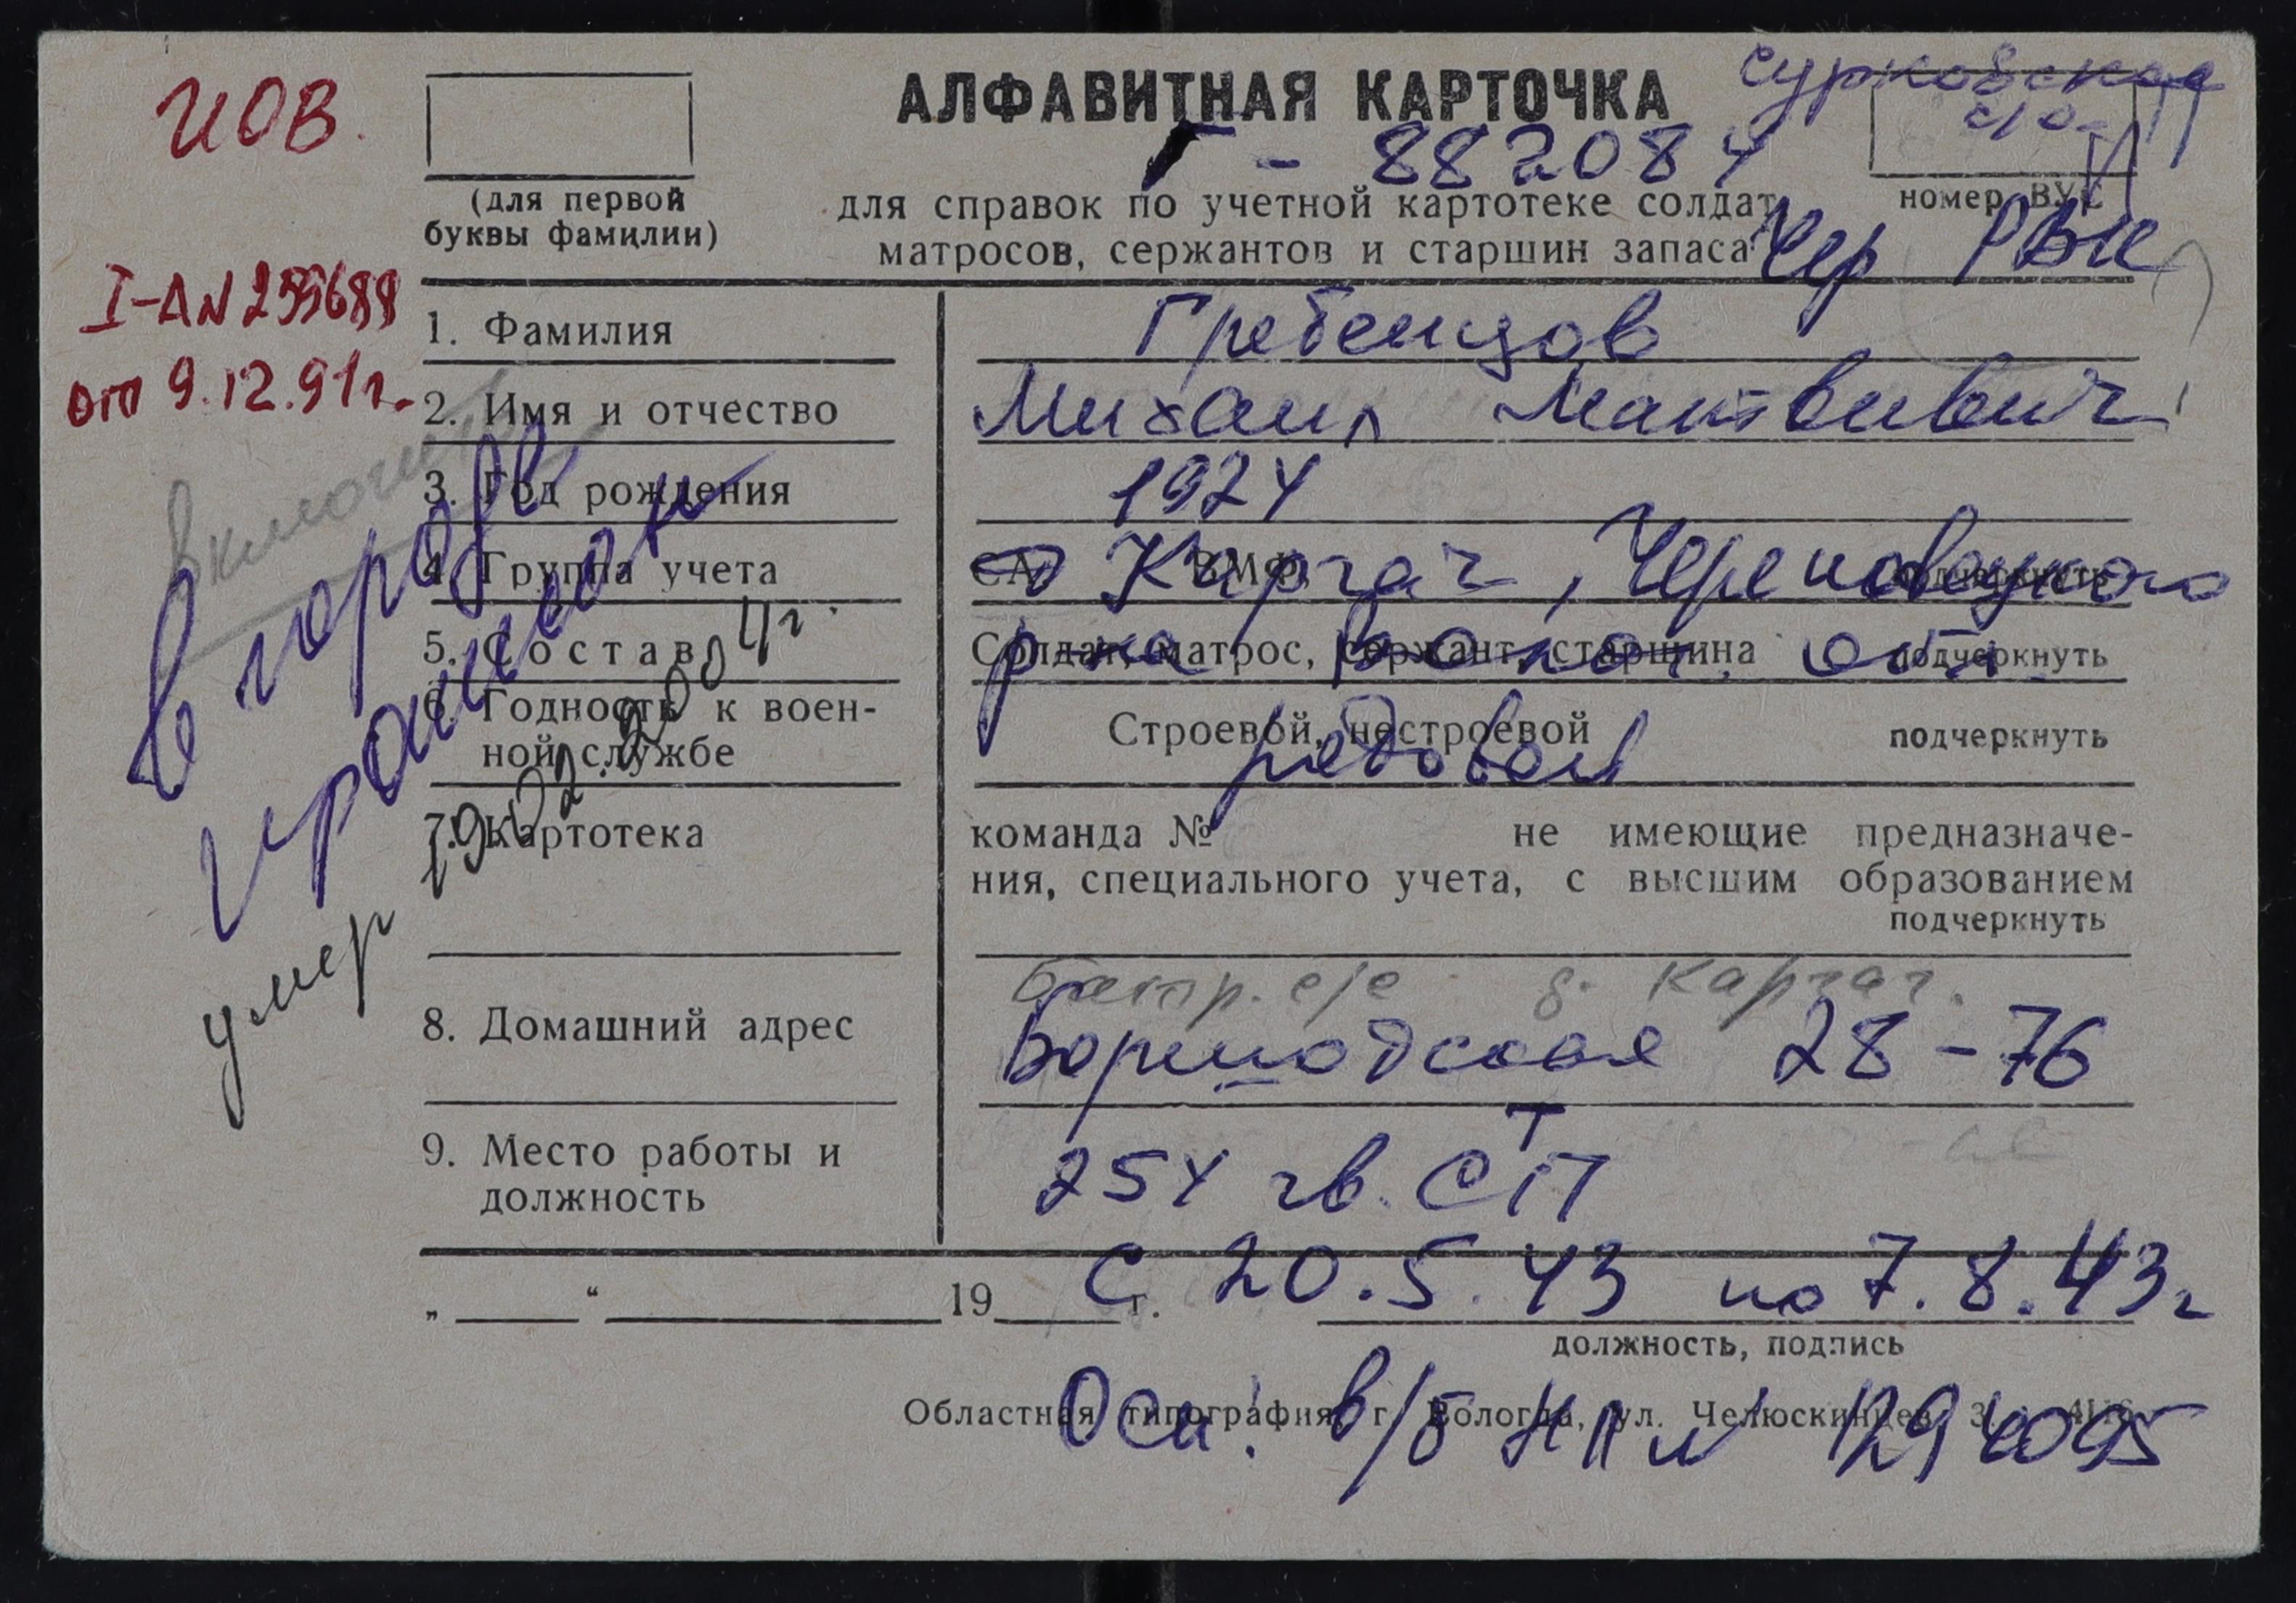 ИОВ.
АЛФАВИТНАЯ КАРТОЧКА
Сурковская
с/о
Г - 882084
(для первой
буквы фамилии)
для справок по учетной картотеке солдат,
матросов, сержантов и старшин запаса
номер ВУС
Чер РВК
I-А N 255688
от 9.12.91г.
1. Фамилия
Гребенцов
2. Имя и отчество
Михаил Матвивич
3. Год рождения
1924
4. Группа учета
СА ВМФ подчеркнуть
Каргач, Череповецкого
5. Состав
Солдат, матрос, сержант, старшина подчеркнуть
р-на Волог. обл.
6. Годность к воен-
ной службе
Строевой, нестроевой подчеркнуть
рядовой
7. Картотека
команда № не имеющие предназначе-
ния, специального учета, с высшим образованием
подчеркнуть
д. Каргач.
8. Домашний адрес
Боршодская 28-76
9. Место работы и
должность
254 гв. СП
Т
„ “ 19 г.
с 20.5.43 по 7.8.43г
должность, подпись
Областная типография, г. Вологда, ул. Челюскинцев, 3.
Осн. в/б НП № 1294095
включен
в городе
умер 19.02.2004г.